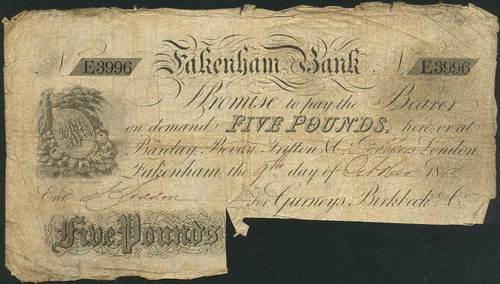 Fakenham Bank
No E3996 No E3996
I Promise to pay the Bearer
on demand FIVE POUNDS, here, or at
Barclay, Bevan, Tritton & Co. Bankers London
Fakenham the 9th day of October 18
Entd
For Gurneys, Birkbeck & Co
Five Pounds